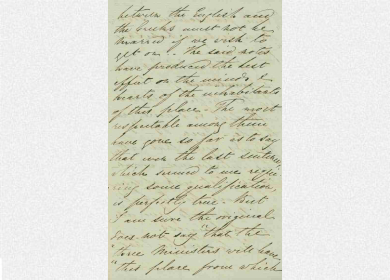 between the English and
the Greeks must not be
married if we wish to
get on". The said notes
have produced the best
effect on the minds &
hearts of the inhabitants
of this place. The most
respectable among them
have gone so far as to say
that even the last sentence,
which seemed to me requi-
ring some qualification,
is perfectly true. But
I am sure the original
does not say "that the
"three Ministers will have
"this place from which